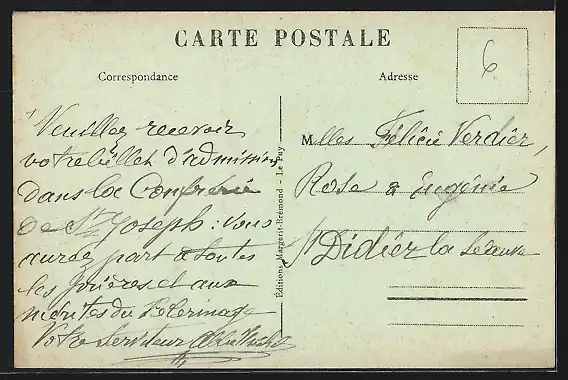 CARTE POSTALE
6
Correspondance
Adresse
Veuillez recevoir
votre billet d'admission
dans la Confrérie
de St Joseph : Vous
aurez part à toutes
les prières et aux
mérites du Pélerinage
Votre Serviteur
Éditions Margerit-Brémond - Le Puy
Melles Félicie Verdier,
Rose & Eugénie
St Didier la Séauve